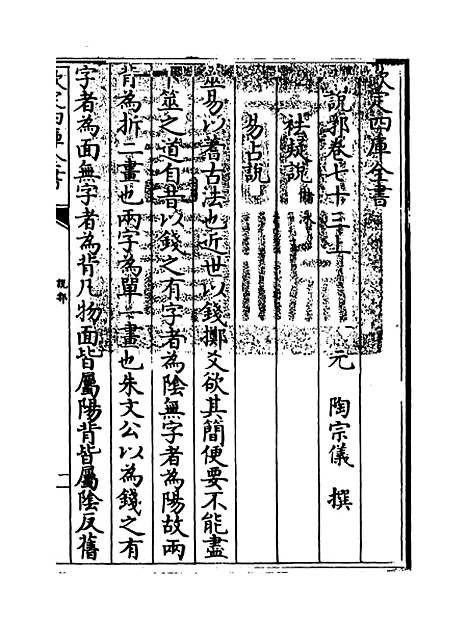 欽定四庫全書
說郛卷七十三上　元　陶宗儀　撰
祛疑說 儲泳
易占說
筮易以蓍古法也近世以錢擲爻欲其簡便要不能盡
卜筮之道自昔以錢之有字者為陰無字者為陽故兩
背為折二畫也兩字為單一畫也朱文公以為錢之有
字者為面無字者為背凡物面皆屬陽背皆屬陰反舊
欽定四庫全書
說郛